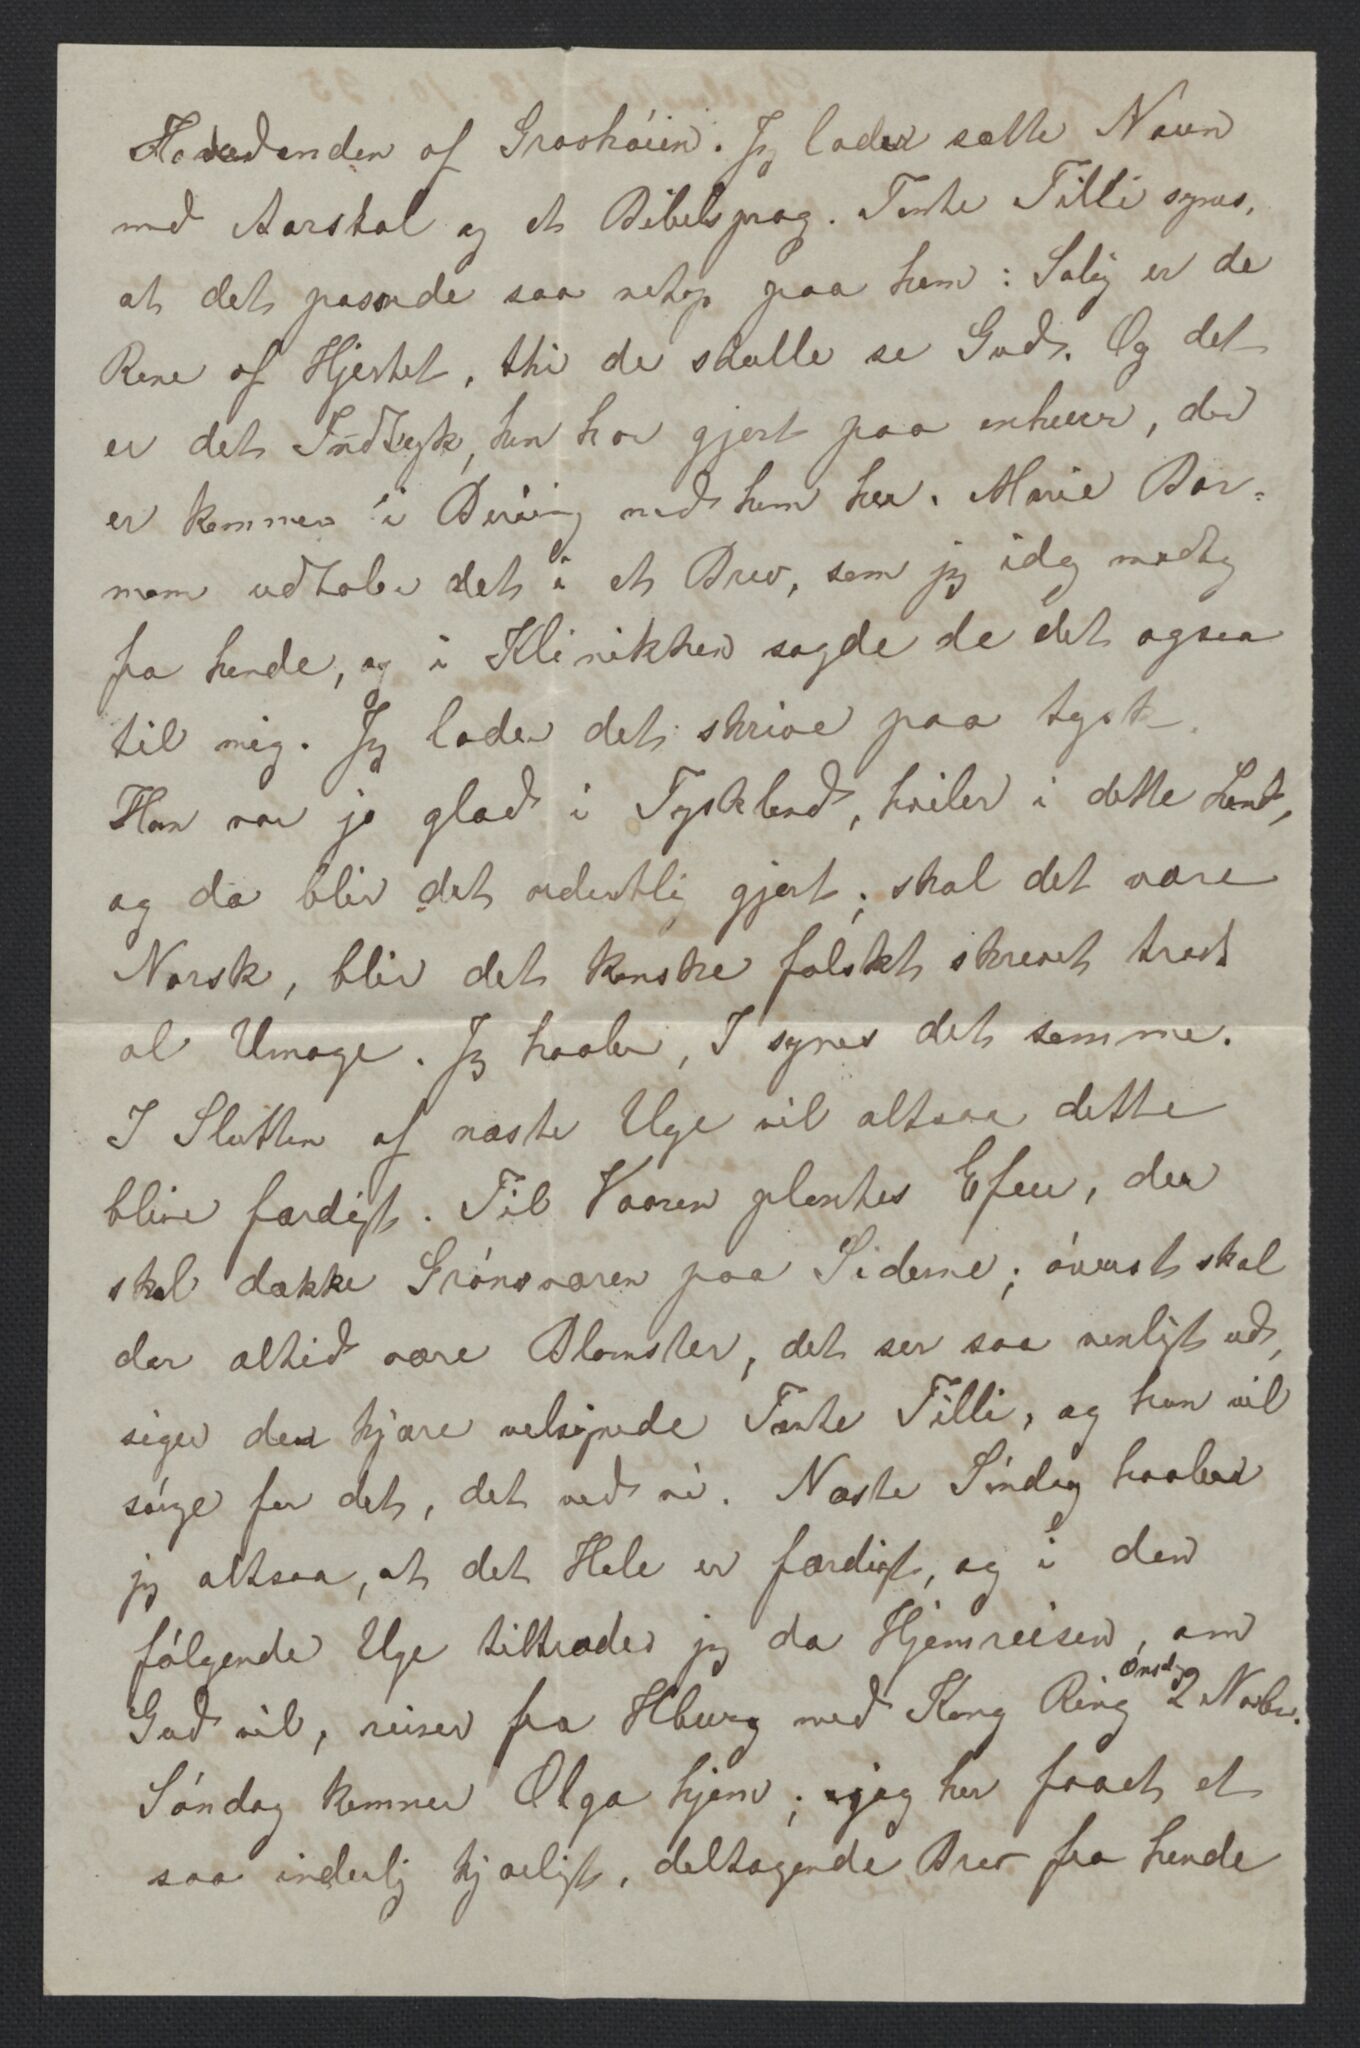 Hovedenden af Gravhöien. Jeg lader sætte Navn
med Aarstal og et Bibelsprog. Tante Tilli synes,
at det passede saa netop paa ham: Salig er de
Rene af Hjertet, thi de skulle se Gud. Og det
er det Indtryk, han har gjort paa enhver, der
er kommen i Beröring med ham her. Marie Bor-
mann udtaler det i et Brev, som jeg idag modtog
fra hende, og i Klinikken sagde de det ogsaa
til mig. Jeg lader det skrive paa tysk.
Han var jo glad i Tyskland, hviler i dette Land,
og da blir det ordentlig gjort; skal det være
Norsk, blir det kanske falskt skrevet trods
al Umage. Jeg haaber, I synes det samme.
I Slutten af næste Uge vil altsaa dette
blive færdigt. Til Vaaren plantes Efeu, der
skal dække Grönsværen paa Siderne; överst skal
der altid være Blomster, det ser saa venligt ud,
siger den kjære velsignede Tante Tilli, og hun vil
sörge for det, det ved vi. Næste Söndag haaber
jeg altsaa, at det Hele er færdigt, og i den
fölgende Uge tiltræder jeg da Hjemreisen, om
Gud vil, reiser fra Hburg med Kong Ring Onsdg 2 Novbr.
Söndag kommer Olga hjem; jeg har faaet et
saa inderlig kjærligt, deltagende Brev fra hende